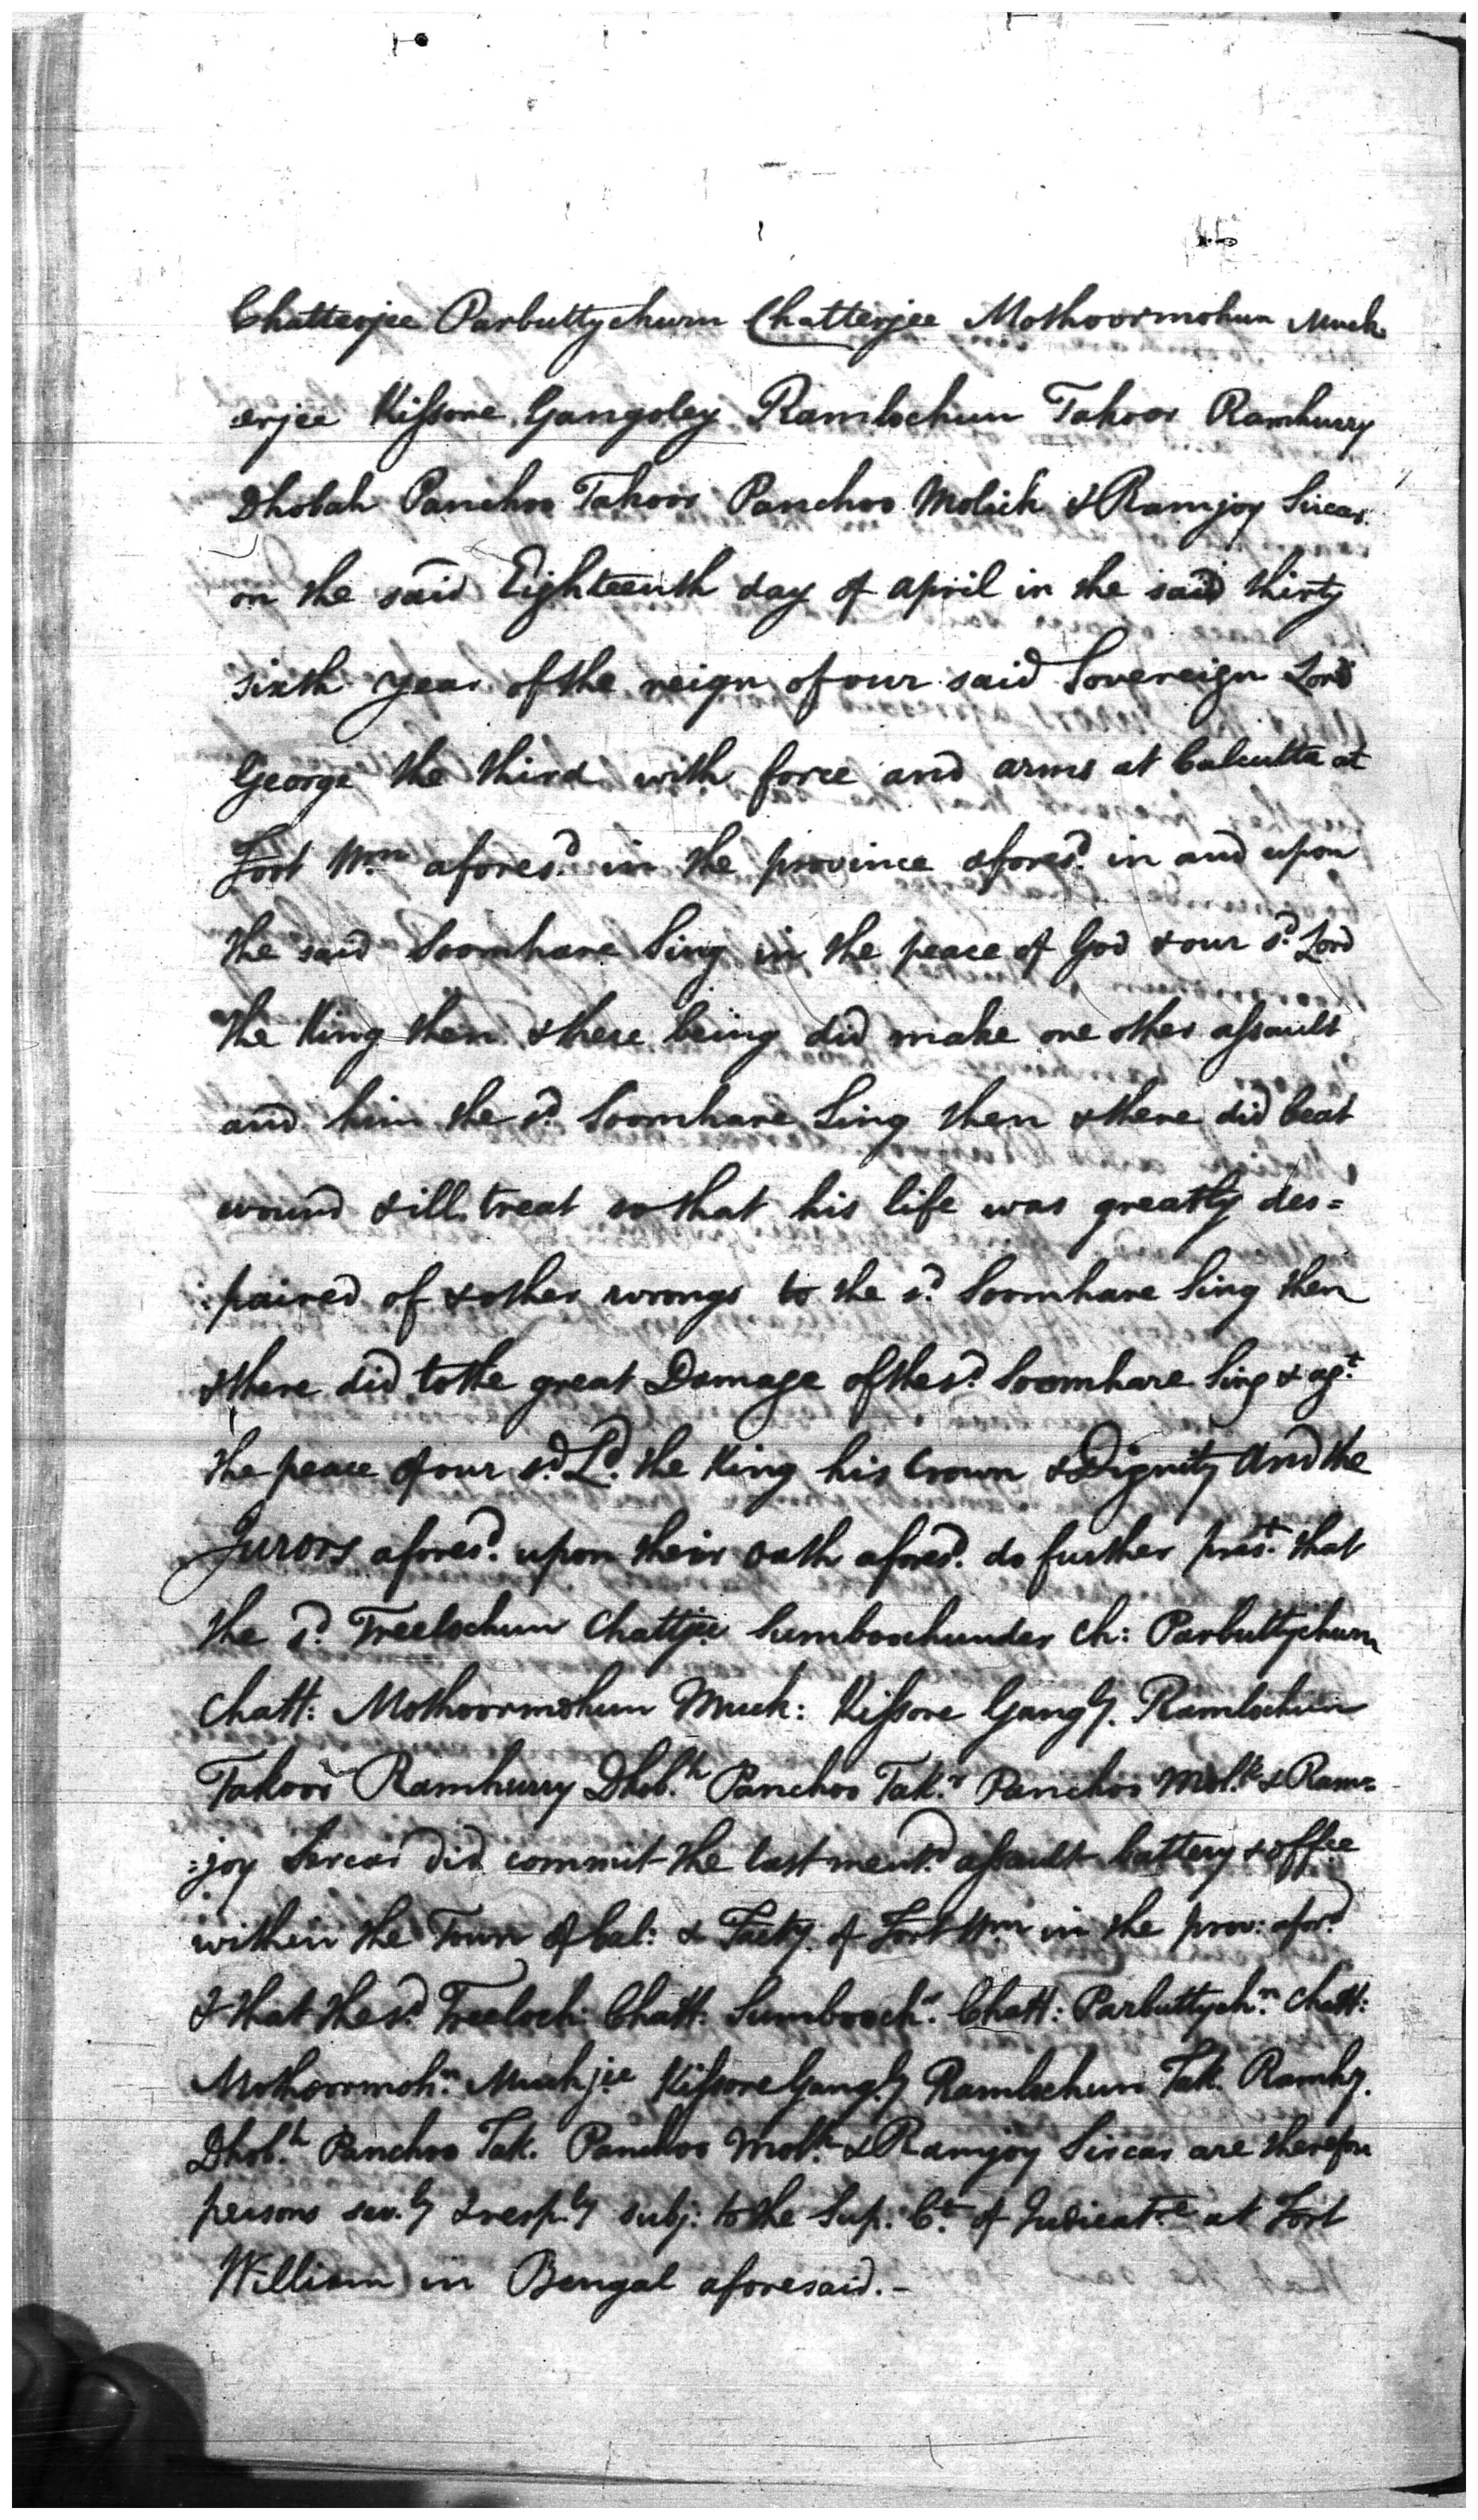 Chatterjee Parbuttychurn Chatterjee Mothoormohun Muck
erjee Kissore Gangoley Ramlochun Takoor Ramhurry
Dhobah Panchoo Takoor Panchoo Molick & Ramjoy Sircar
on the said Eighteenth day of April in the said thirty
sixth year of the reign of our said Sovereign Lord
George the third with force and arms at Calcutta at
Fort Wm. afores'd. in the province afores'd. in and upon
the said Soomhare Sing in the peace of God & our s'd. Lord
the King then & there being did make one other assault
and him the s'd. Soomhare Sing then & there did beat
wound & ill treat so that his life was greatly des=
:paired of & other wrongs to the s'd. Soomhare Sing then
& there did to the great Damage of the s'd. Soomhare Sing & ag't.
the peace of our s'd. L'd. the King his Crown & Dignity And the
Jurors afores'd. upon their oath afores'd. do further pres't. that
the s'd. Treelochun Chattjee Sumboochunder Ch: Parbuttychurn
Chatt: Mothoormohun Muck: Kissore Gang'y. Ramlochun
Takoor Ramhurry Dhob.h Panchoo Tak.r Panchoo Mol.k & Ram=
:joy Sircar did commit the last ment'd assault battery & offce
within the Town of Cal: & Facty. of Fort Wm. in the prov: afors'd
& that the s'd. Treeloch: Chatt: Sumbooch.r Chatt: Parbuttych.n Chatt:
Mothoormoh.n Muckjee Kissore Gang.y Ramlochun Tak. Ramhy.
Dhob.h Panchoo Tak. Panchoo Mol.k & Ramjoy Sircar are therefore
persons sev.ly & resp.ly subj: to the Sup. C.t of Judicat.e at Fort
William in Bengal aforesaid.-